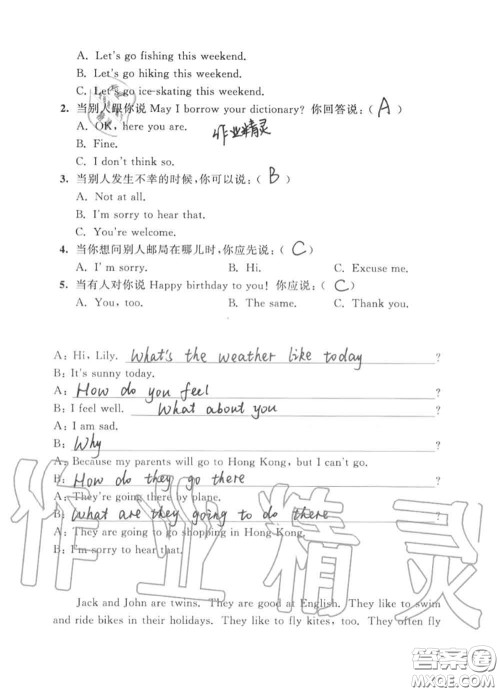 A. Let's go fishing this weekend.
B. Let's go hiking this weekend.
C. Let's go ice-skating this weekend.
2. 当别人跟你说 May I borrow your dictionary? 你回答说:( A )
A. OK, here you are.
作业精灵
B. Fine.
C. I don't think so.
3. 当别人发生不幸的时候,你可以说:( B )
A. Not at all.
B. I'm sorry to hear that.
C. You're welcome.
4. 当你想问别人邮局在哪儿时,你应先说:( C )
A. I'm sorry. B. Hi. C. Excuse me.
5. 当有人对你说 Happy birthday to you! 你应说:( C )
A. You, too. B. The same. C. Thank you.
A: Hi, Lily. What's the weather like today ?
B: It's sunny today.
A: How do you feel ?
B: I feel well. What about you ?
A: I am sad.
B: Why ?
A: Because my parents will go to Hong Kong, but I can't go.
B: How do they go there ?
A: They're going there by plane.
B: What are they going to do there ?
A: They are going to go shopping in Hong Kong.
B: I'm sorry to hear that.
作业精灵
Jack and John are twins. They are good at English. They like to swim
and ride bikes in their holidays. They like to fly kites, too. They often fly
答案圈
MXQE.COM